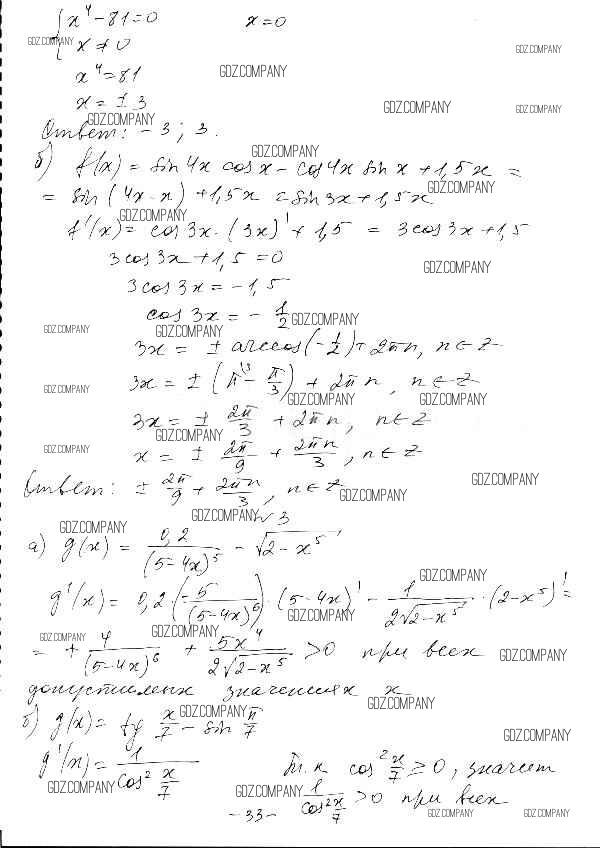 { x⁴ - 81 = 0          x = 0
x ≠ 0
GDZ.COMPANY GDZ.COMPANY
x⁴ = 81 GDZ.COMPANY
x = ± 3 GDZ.COMPANY GDZ.COMPANY
GDZ.COMPANY
Ответ: -3; 3.
GDZ.COMPANY
б) f(x) = sin 4x cos x - cos 4x sin x + 1,5x =
GDZ.COMPANY
= sin (4x - x) + 1,5x = sin 3x + 1,5x
GDZ.COMPANY
f'(x) = cos 3x · (3x)' + 1,5 = 3 cos 3x + 1,5
3 cos 3x + 1,5 = 0
GDZ.COMPANY
3 cos 3x = -1,5
cos 3x = - 1/2 GDZ.COMPANY
GDZ.COMPANY GDZ.COMPANY
3x = ± arccos(-1/2) + 2πn, n ∈ Z
3x = ± (π - π/3) + 2πn, n ∈ Z
GDZ.COMPANY GDZ.COMPANY GDZ.COMPANY
3x = ± 2π/3 + 2πn, n ∈ Z
GDZ.COMPANY
GDZ.COMPANY x = ± 2π/9 + 2πn/3, n ∈ Z
GDZ.COMPANY
Ответ: ± 2π/9 + 2πn/3, n ∈ Z
GDZ.COMPANY
GDZ.COMPANY √3
GDZ.COMPANY
а) g(x) = 0,2/(5-4x)⁵ - √(2-x⁵)
GDZ.COMPANY
g'(x) = 0,2 · (-5/(5-4x)⁶) · (5-4x)' - 1/(2√(2-x⁵)) · (2-x⁵)' =
GDZ.COMPANY
GDZ.COMPANY GDZ.COMPANY
= + 4/(5-4x)⁶ + 5x⁴/(2√(2-x⁵)) > 0 при всех
GDZ.COMPANY
допустимых значениях x
GDZ.COMPANY GDZ.COMPANY
б) g(x) = tg x/7 - sin π/7
GDZ.COMPANY
g'(x) = 1/cos² x/7     т.к cos² x/7 ≥ 0, значит
GDZ.COMPANY GDZ.COMPANY
1/cos² x/7 > 0 при всех
- 33 -
GDZ.COMPANY GDZ.COMPANY